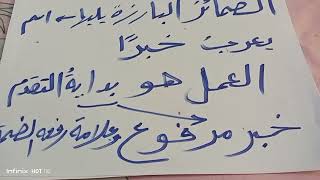 الضمائر البارزة يليها اسم
يعرب خبرًا
العمل هو بدايةُ التقدم
خبر مرفوع وعلامة رفعه الضمة
Infinix HOT